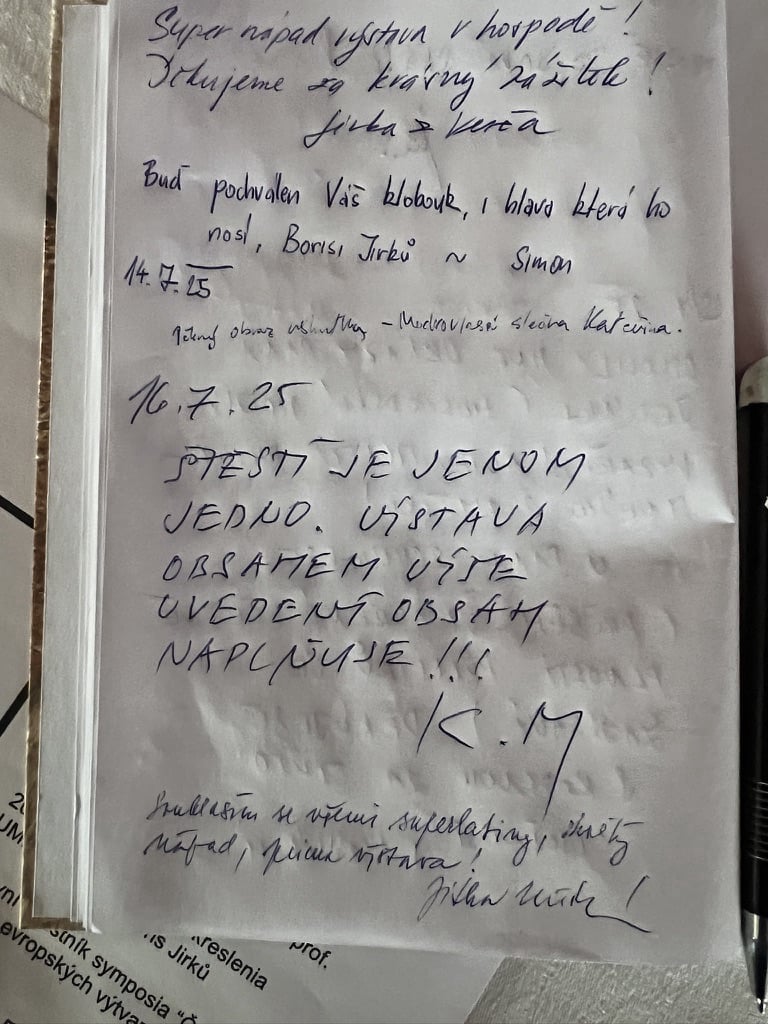 Super nápad výstava v hospodě!
Děkujeme za krásný zážitek!
Jirka z
Buď pochválen Váš klobouk, i hlava která ho
nosí, Borisi Jirků ~ Simon
14.7.25
Pěkný obraz - Modrovlasá slečna Kateřina.
16.7.25
ŠTĚSTÍ JE JENOM
JEDNO. VÝSTAVA
OBSAHEM VÝŠE
UVEDENÝ OBSAH
NAPLŇUJE!!!
K.M
Souhlasím se všemi superlativy, skvělý
nápad, prima výstava!
Jitka
20
UM
kreslenia
prof.
is Jirků
stník symposia "Č
evropských výtva